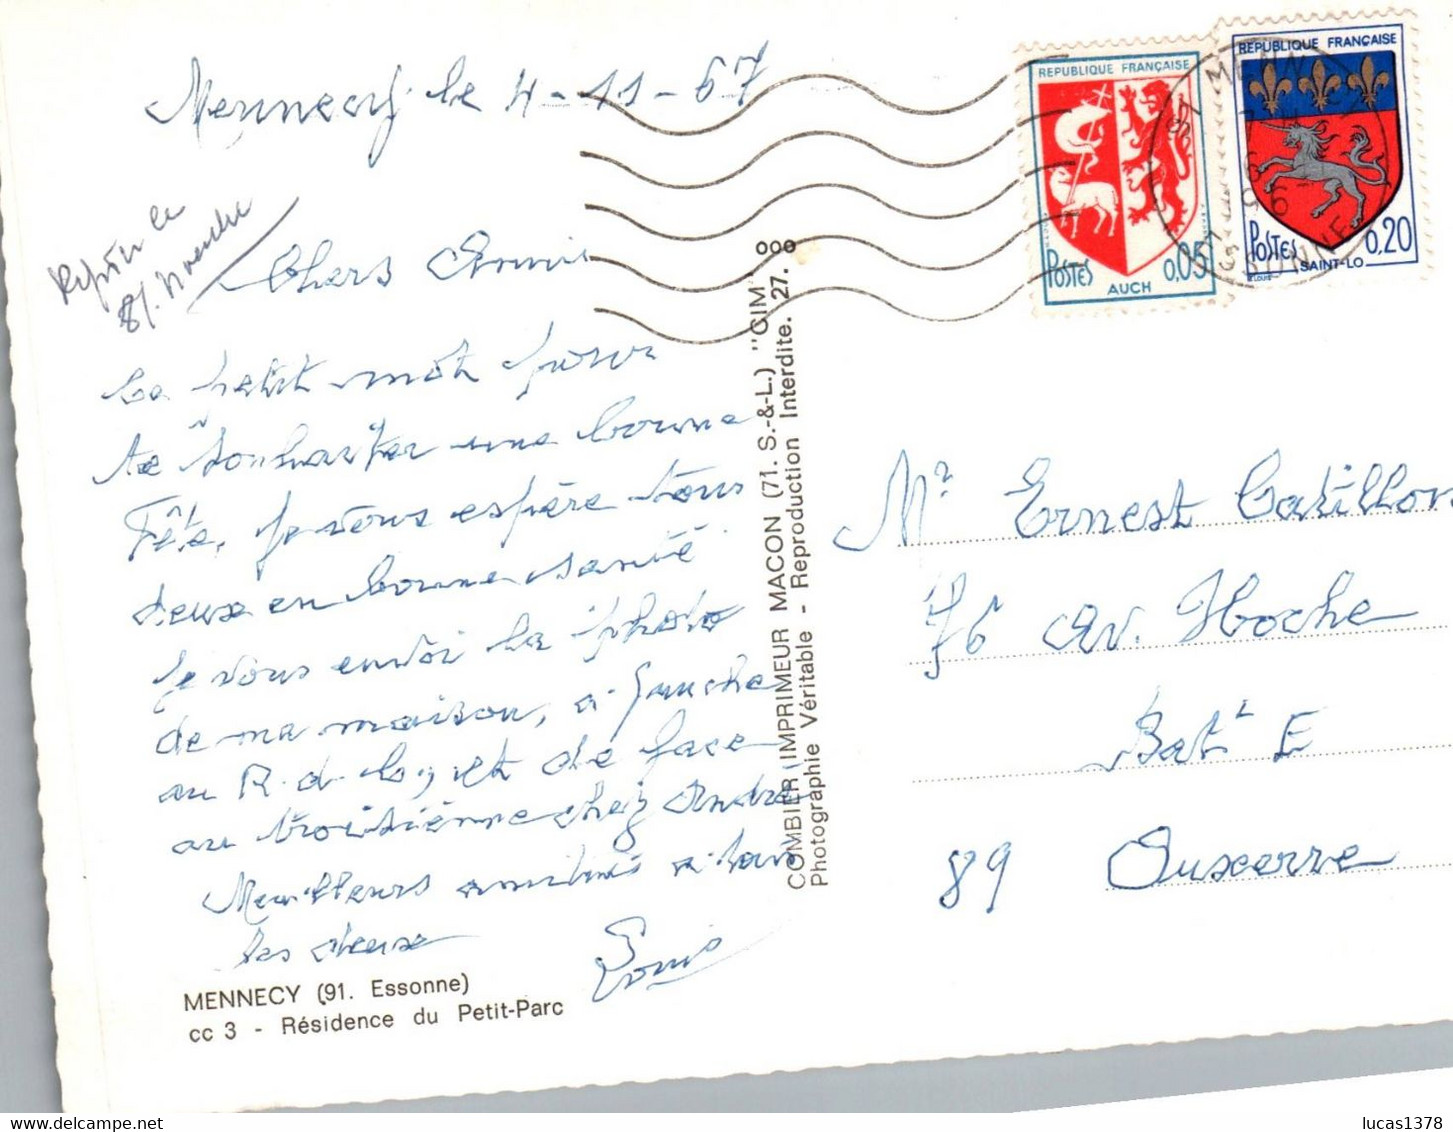 Mennecy le 4-11-67
Chers Amis
Ce petit mot pour
te souhaiter une bonne
Fête, je vous espère tous
deux en bonne santé.
Je vous envoi la photo
de ma maison, à gauche
au R. d. c, et de face
au troisième chez André
Meilleurs amitiés a tous
les deux
Louis
MENNECY (91. Essonne)
cc 3 - Résidence du Petit-Parc
COMBIER IMPRIMEUR MACON (71. S.-&-L.) "CIM"
Photographie Véritable - Reproduction Interdite. 27. ooo
REPUBLIQUE FRANÇAISE
POSTES 0,05
AUCH
REPUBLIQUE FRANÇAISE
POSTES 0,20
SAINT-LO
Mr Ernest Catillon
76 Av. Hoche
Bat E
89 Auxerre
lucas1378